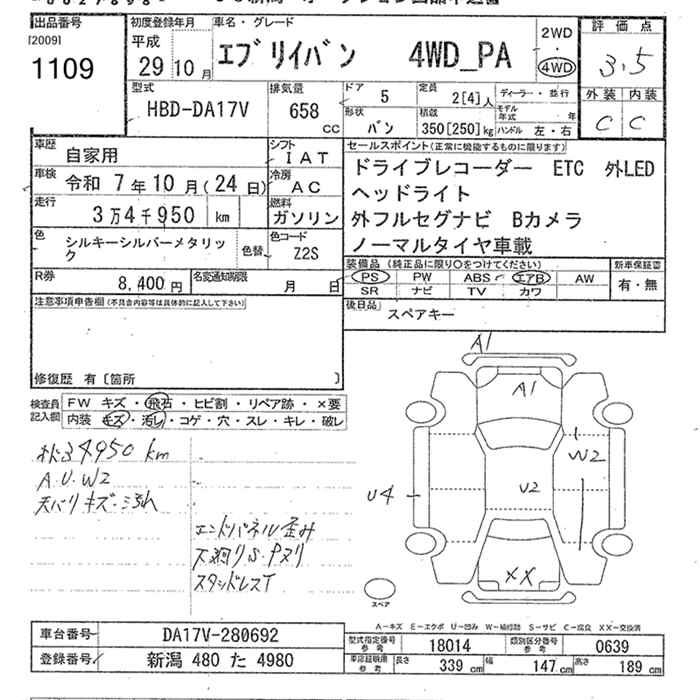 出品番号
[2009]
1109
初度登録年月
平成
29年10月
車名・グレード
エブリイバン 4WD_PA
2WD
・
4WD
評価点
3.5
外装 内装
C C
型式
HBD-DA17V
排気量
658
CC
ドア
5
定員
2[4]人
形状
バン
積載
350[250]kg
ディーラー・並行
モデル年式 年
ハンドル 左・右
車歴
自家用
シフト
I AT
車検
令和 7年10月(24日)
冷房
AC
走行
3万4千950 km
燃料
ガソリン
色
シルキーシルバーメタリック
色替
色コード
Z2S
R券
8,400円
名変通知期限
月 日
セールスポイント(正常に機能するものに限ります)
ドライブレコーダー ETC 外LED
ヘッドライト
外フルセグナビ Bカメラ
ノーマルタイヤ車載
装備品(純正品に限り○をつけてください)
PS PW ABS エアB AW
SR ナビ TV カワ
新車保証書
有・無
後日品
スペアキー
注意事項申告欄(不具合内容等は具体的に記入して下さい)
修復歴 有〔箇所 〕
検査員記入欄
FW キズ・飛石・ヒビ割・リペア跡・×要
内装 キズ・汚レ・コゲ・穴・スレ・キレ・破レ
34950 km
A.U.W2
天バリキズ・
エンドパネル歪み
下廻りS.Pヌリ
スタッドレスT
A1
A1
W2
U4
U2
XX
スペア
A-キズ E-エクボ U-凹み W-補修跡 S-サビ C-腐食 XX-交換済
車台番号
DA17V-280692
登録番号
新潟 480 た 4980
型式指定番号
参考
18014
類別区分番号
参考
0639
車検証記載
参考
長さ
339 cm
幅
147 cm
高さ
189 cm